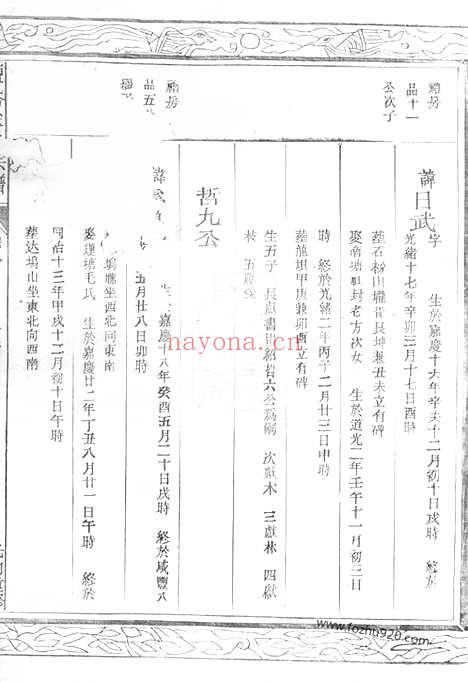 禮房
品十一
公次子
諱日武
字 生於嘉慶十六年辛未十二月初十日戌時 終於
光緒十七年辛卯三月十七日酉時
葬石 山 艮坤兼丑未立有碑
娶 塘 封老方次女 生於道光二年壬午十一月初三日
時 終於光緒二年丙子二月廿三日申時
葬龍垻甲庚兼卯酉立有碑
生五子 長獻書 六公為嗣 次獻木 三獻林 四獻
枝 五
哲九公
禮房
品五
諱
嘉慶十八年癸酉五月二十日戌時 終於咸豐八
五月廿八日卯時
塢 坐西北向東南
娶蓮塘毛氏 生於嘉慶廿二年丁丑八月廿一日午時 終於
同治十三年甲戌十二月初十日午時
葬达塢山坐東北向西南
譜
nayona.cn
www.fozhu920.com